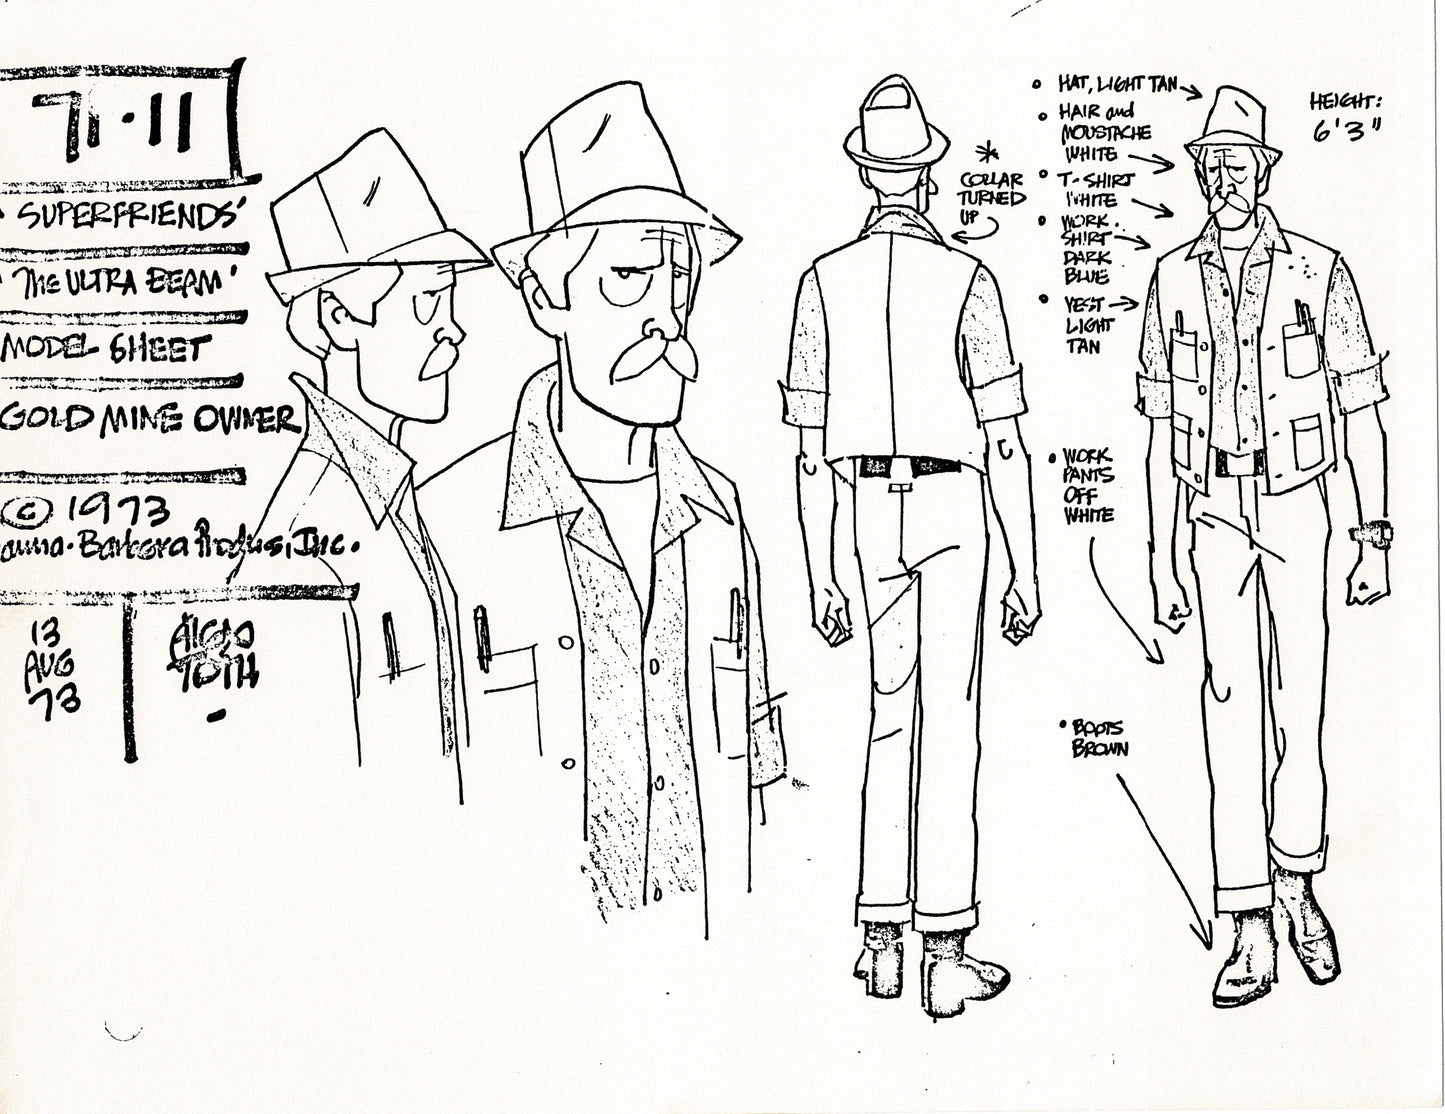 71·11
'SUPERFRIENDS'
'THE ULTRA BEAM'
MODEL SHEET
GOLD MINE OWNER
© 1973
anna·Barbera Produs, Inc.
13
AUG
73
TOTH
*
COLLAR
TURNED
UP
• HAT, LIGHT TAN
• HAIR and
MOUSTACHE
WHITE
• T-SHIRT
WHITE
• WORK
SHIRT
DARK
BLUE
• VEST
LIGHT
TAN
HEIGHT:
6'3"
• WORK
PANTS
OFF
WHITE
• BOOTS
BROWN